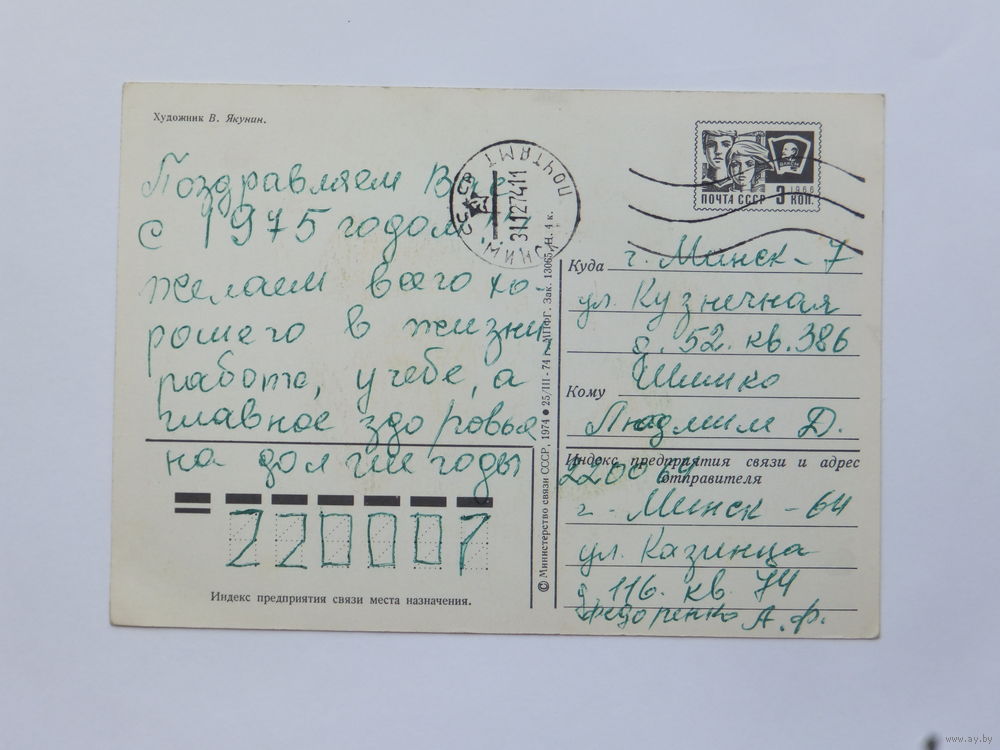 Художник В. Якунин.
ПОЧТА СССР 3 КОП.
1966
ВЛКСМ
ПОЧТАМТ
31127411
МИНСК
Поздравляем Вас
с 1975 годом!!
желаем всего хо-
рошего в жизни,
работе, учебе, а
главное здоровья
на долгие годы
Куда г. Минск-7
ул. Кузнечная
д. 52. кв. 386
Кому Шимко
Людмиле Д.
Индекс предприятия связи и адрес
отправителя
220064
г. Минск-64
ул. Казинца
д. 116. кв. 74
Федоренко А. Ф.
220007
Индекс предприятия связи места назначения.
© Министерство связи СССР, 1974 ● 25/III-74 г. МПФГ. Зак. 13065. Н. 4 к.
www.ay.by